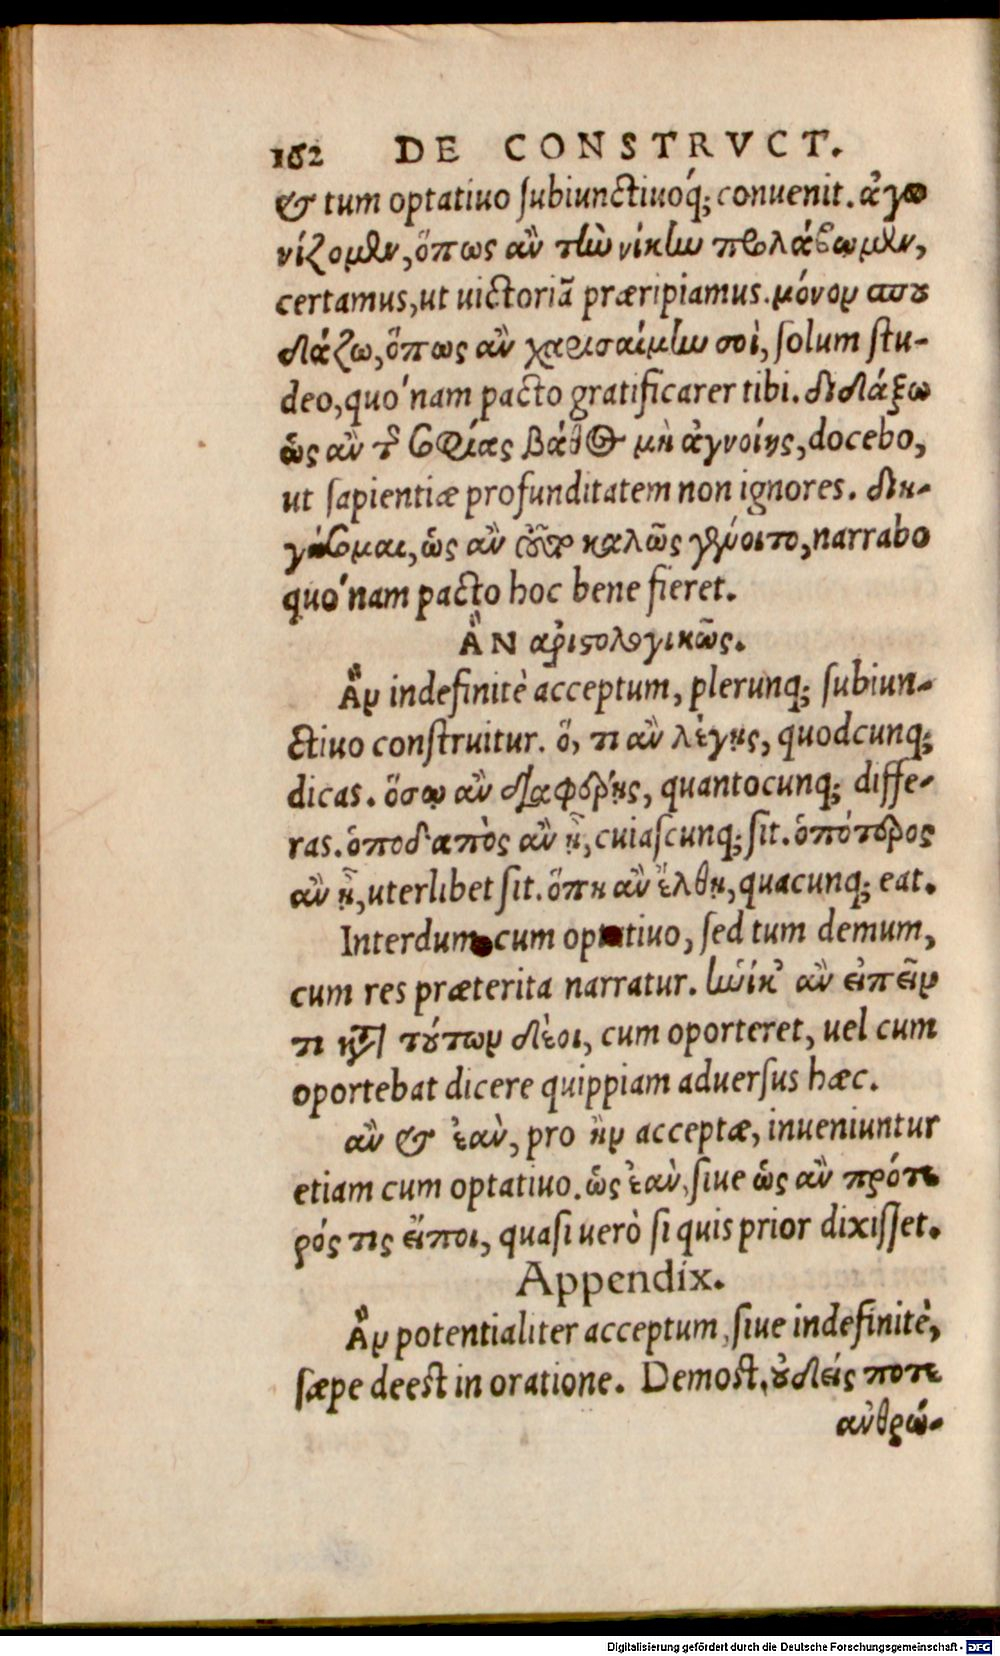 162 DE CONSTRVCT.
& tum optatiuo ſubiunctiuoq́; conuenit. ἀγω
νίζομεν, ὅπως ἂν τὴν νίκην προλάβωμεν,
certamus, ut uictoriã præripiamus. μόνον σπου
δάζω, ὅπως ἂν χαρισαίμην σοὶ, ſolum ſtu-
deo, quo'nam pacto gratificarer tibi. διδάξω
ὡς ἂν τ͂ σοφίας βάθος μὴ ἀγνοίης, docebo,
ut ſapientiæ profunditatem non ignores. διη-
γήσομαι, ὡς ἂν καλῶς γένοιτο, narrabo
quo'nam pacto hoc bene fieret.
ἊΝ ἀοριστολογικῶς.
Ἂν indefinitè acceptum, plerunq; ſubiun-
ctiuo conſtruitur. ὅ, τι ἂν λέγῃς, quodcunq;
dicas. ὅσῳ ἂν διαφέρῃς, quantocunq; diffe-
ras. ὁποδαπὸς ἂν ᾖ, cuiaſcunq; ſit. ὁπότερος
ἂν ᾖ, uterlibet ſit. ὅπη ἂν ἔλθῃ, quacunq; eat.
Interdum cum optatiuo, ſed tum demum,
cum res præterita narratur. ἡνίκ' ἂν εἰπεῖν
τι κατὰ τούτων δέοι, cum oporteret, uel cum
oportebat dicere quippiam aduerſus hæc.
ἂν & ἐὰν, pro ἢν acceptæ, inueniuntur
etiam cum optatiuo. ὡς ἐὰν, ſiue ὡς ἂν πρότε
ρός τις εἴποι, quaſi uerò ſi quis prior dixiſſet.
Appendix.
Ἂν potentialiter acceptum, ſiue indefinitè,
ſæpe deeſt in oratione. Demoſt. οὐδείς ποτε
ἀνθρώ-
Digitalisierung gefördert durch die Deutsche Forschungsgemeinschaft - DFG